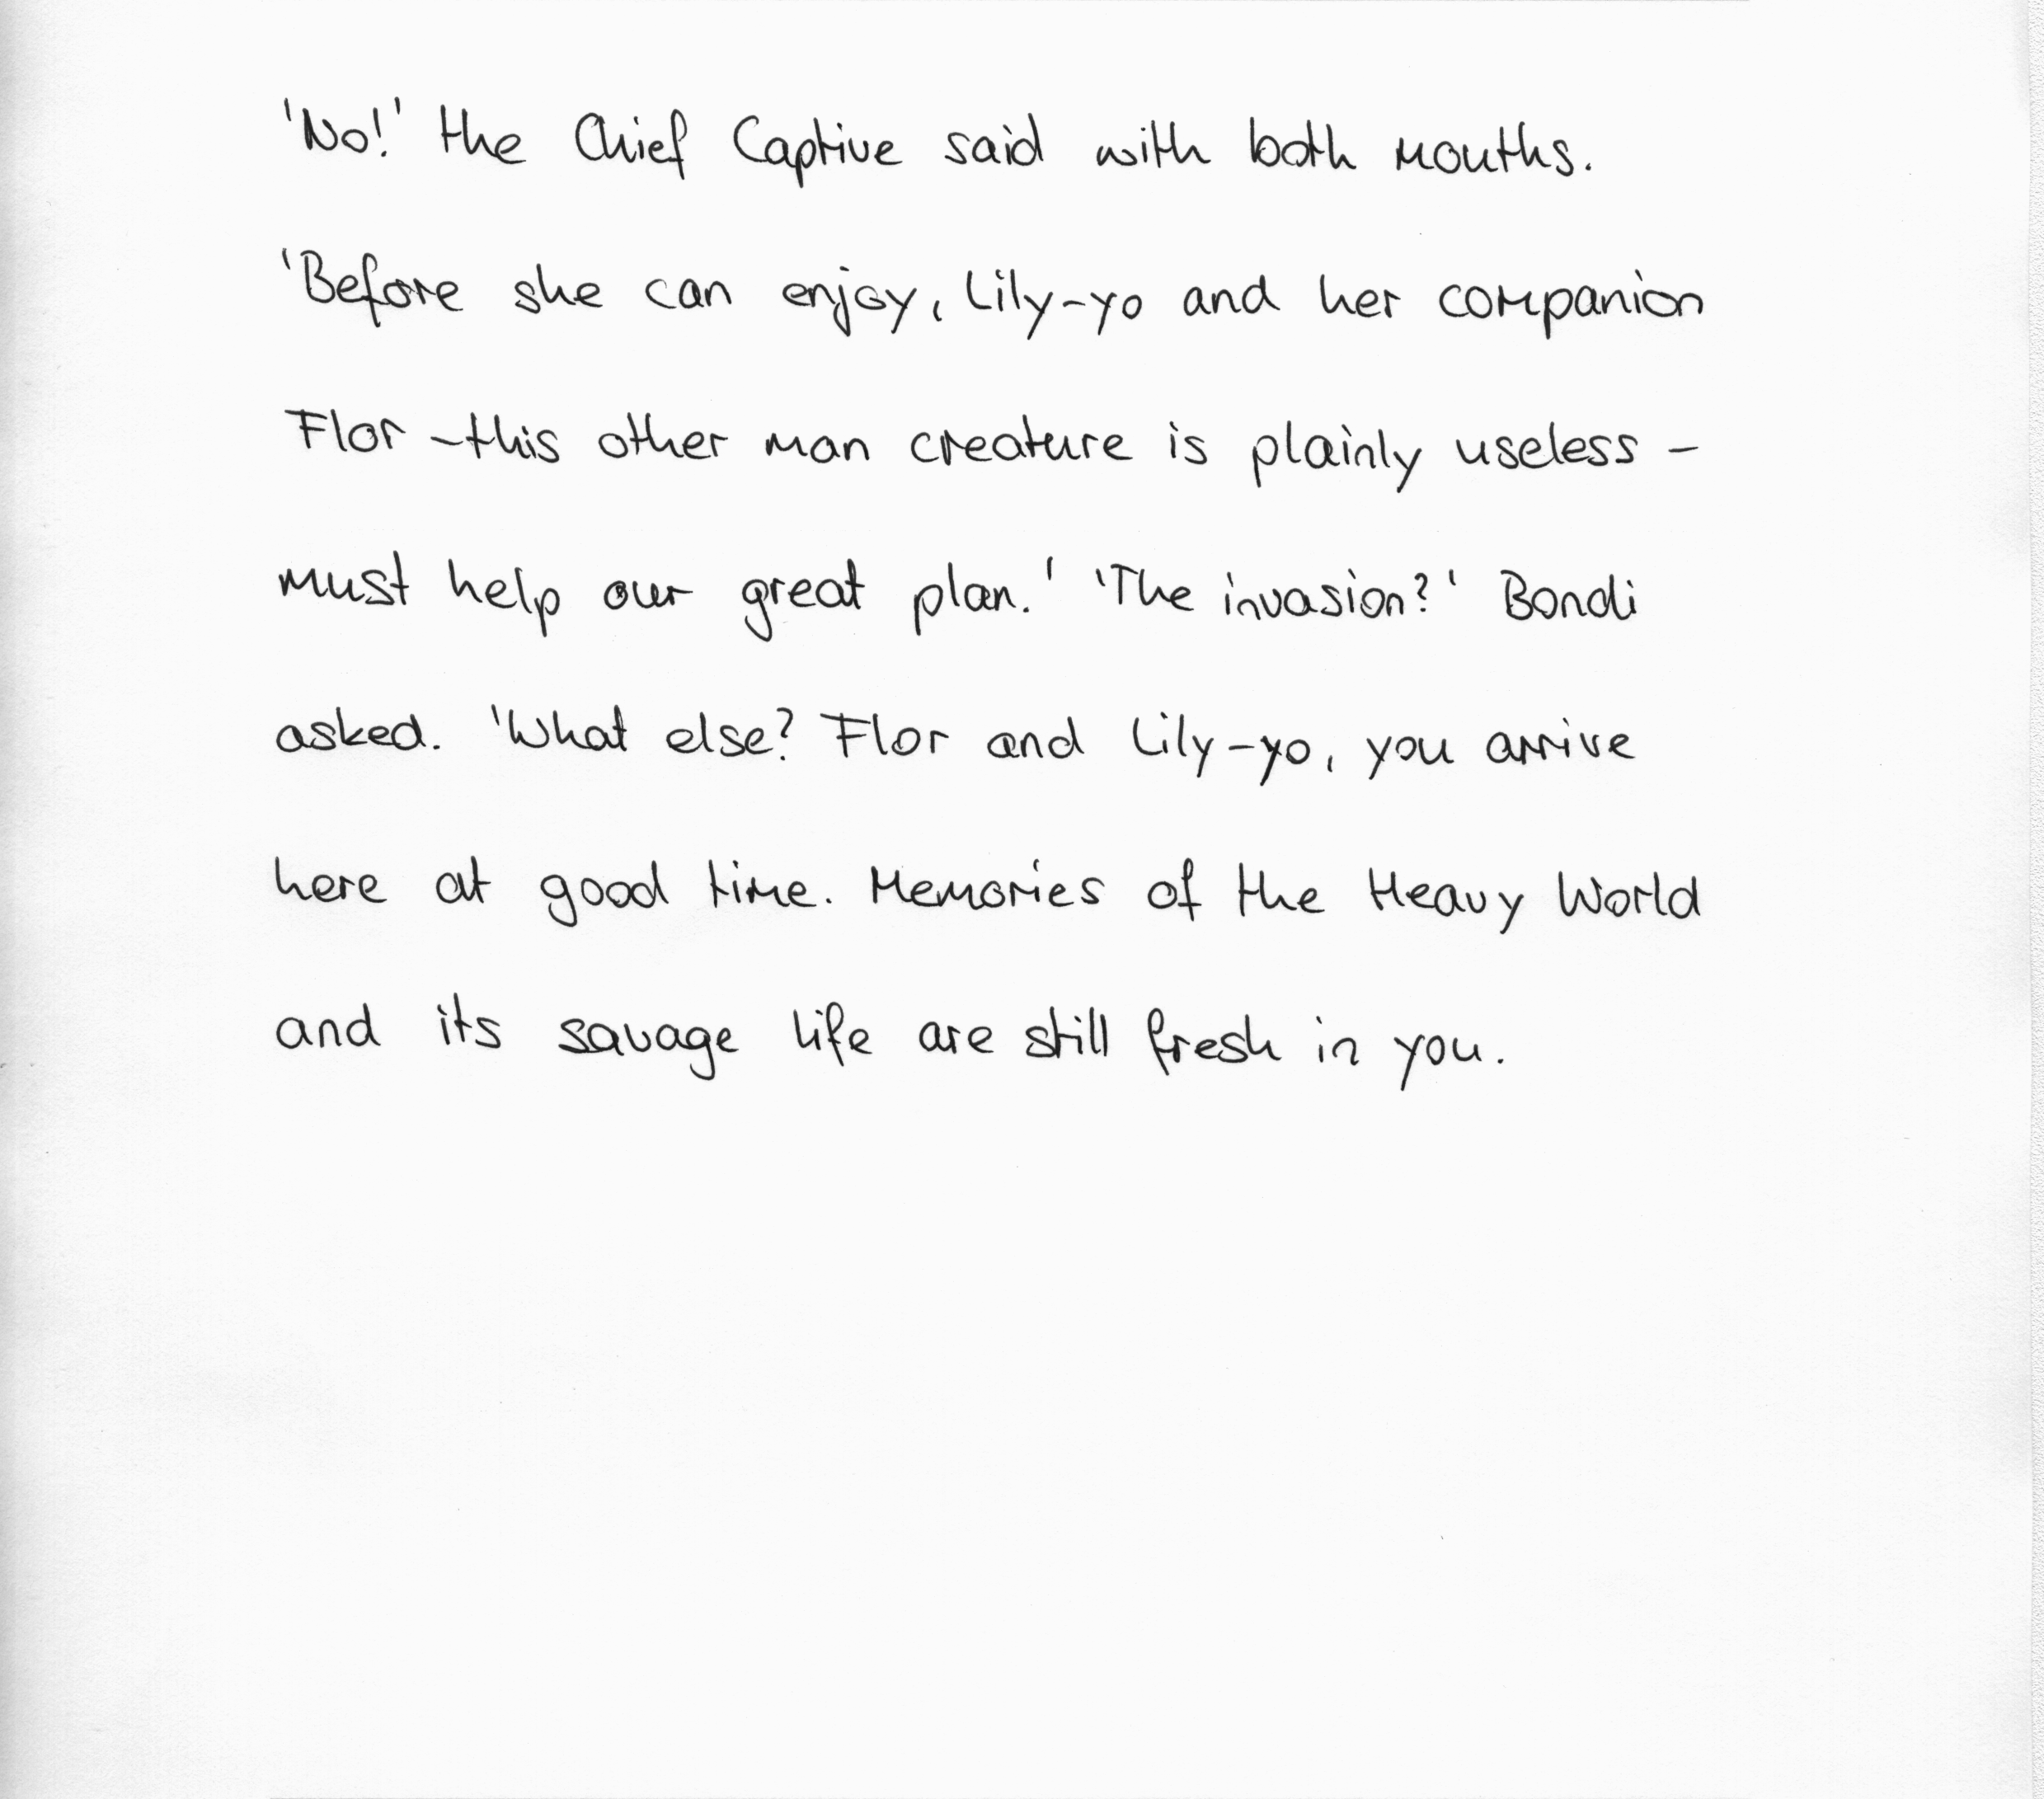 'No!' the Chief Captive said with both mouths.
'Before she can enjoy, Lily-yo and her companion
Flor -this other man creature is plainly useless -
must help our great plan.' 'The invasion?' Bondi
asked. 'What else? Flor and Lily-yo, you arrive
here at good time. Memories of the Heavy World
and its savage life are still fresh in you.